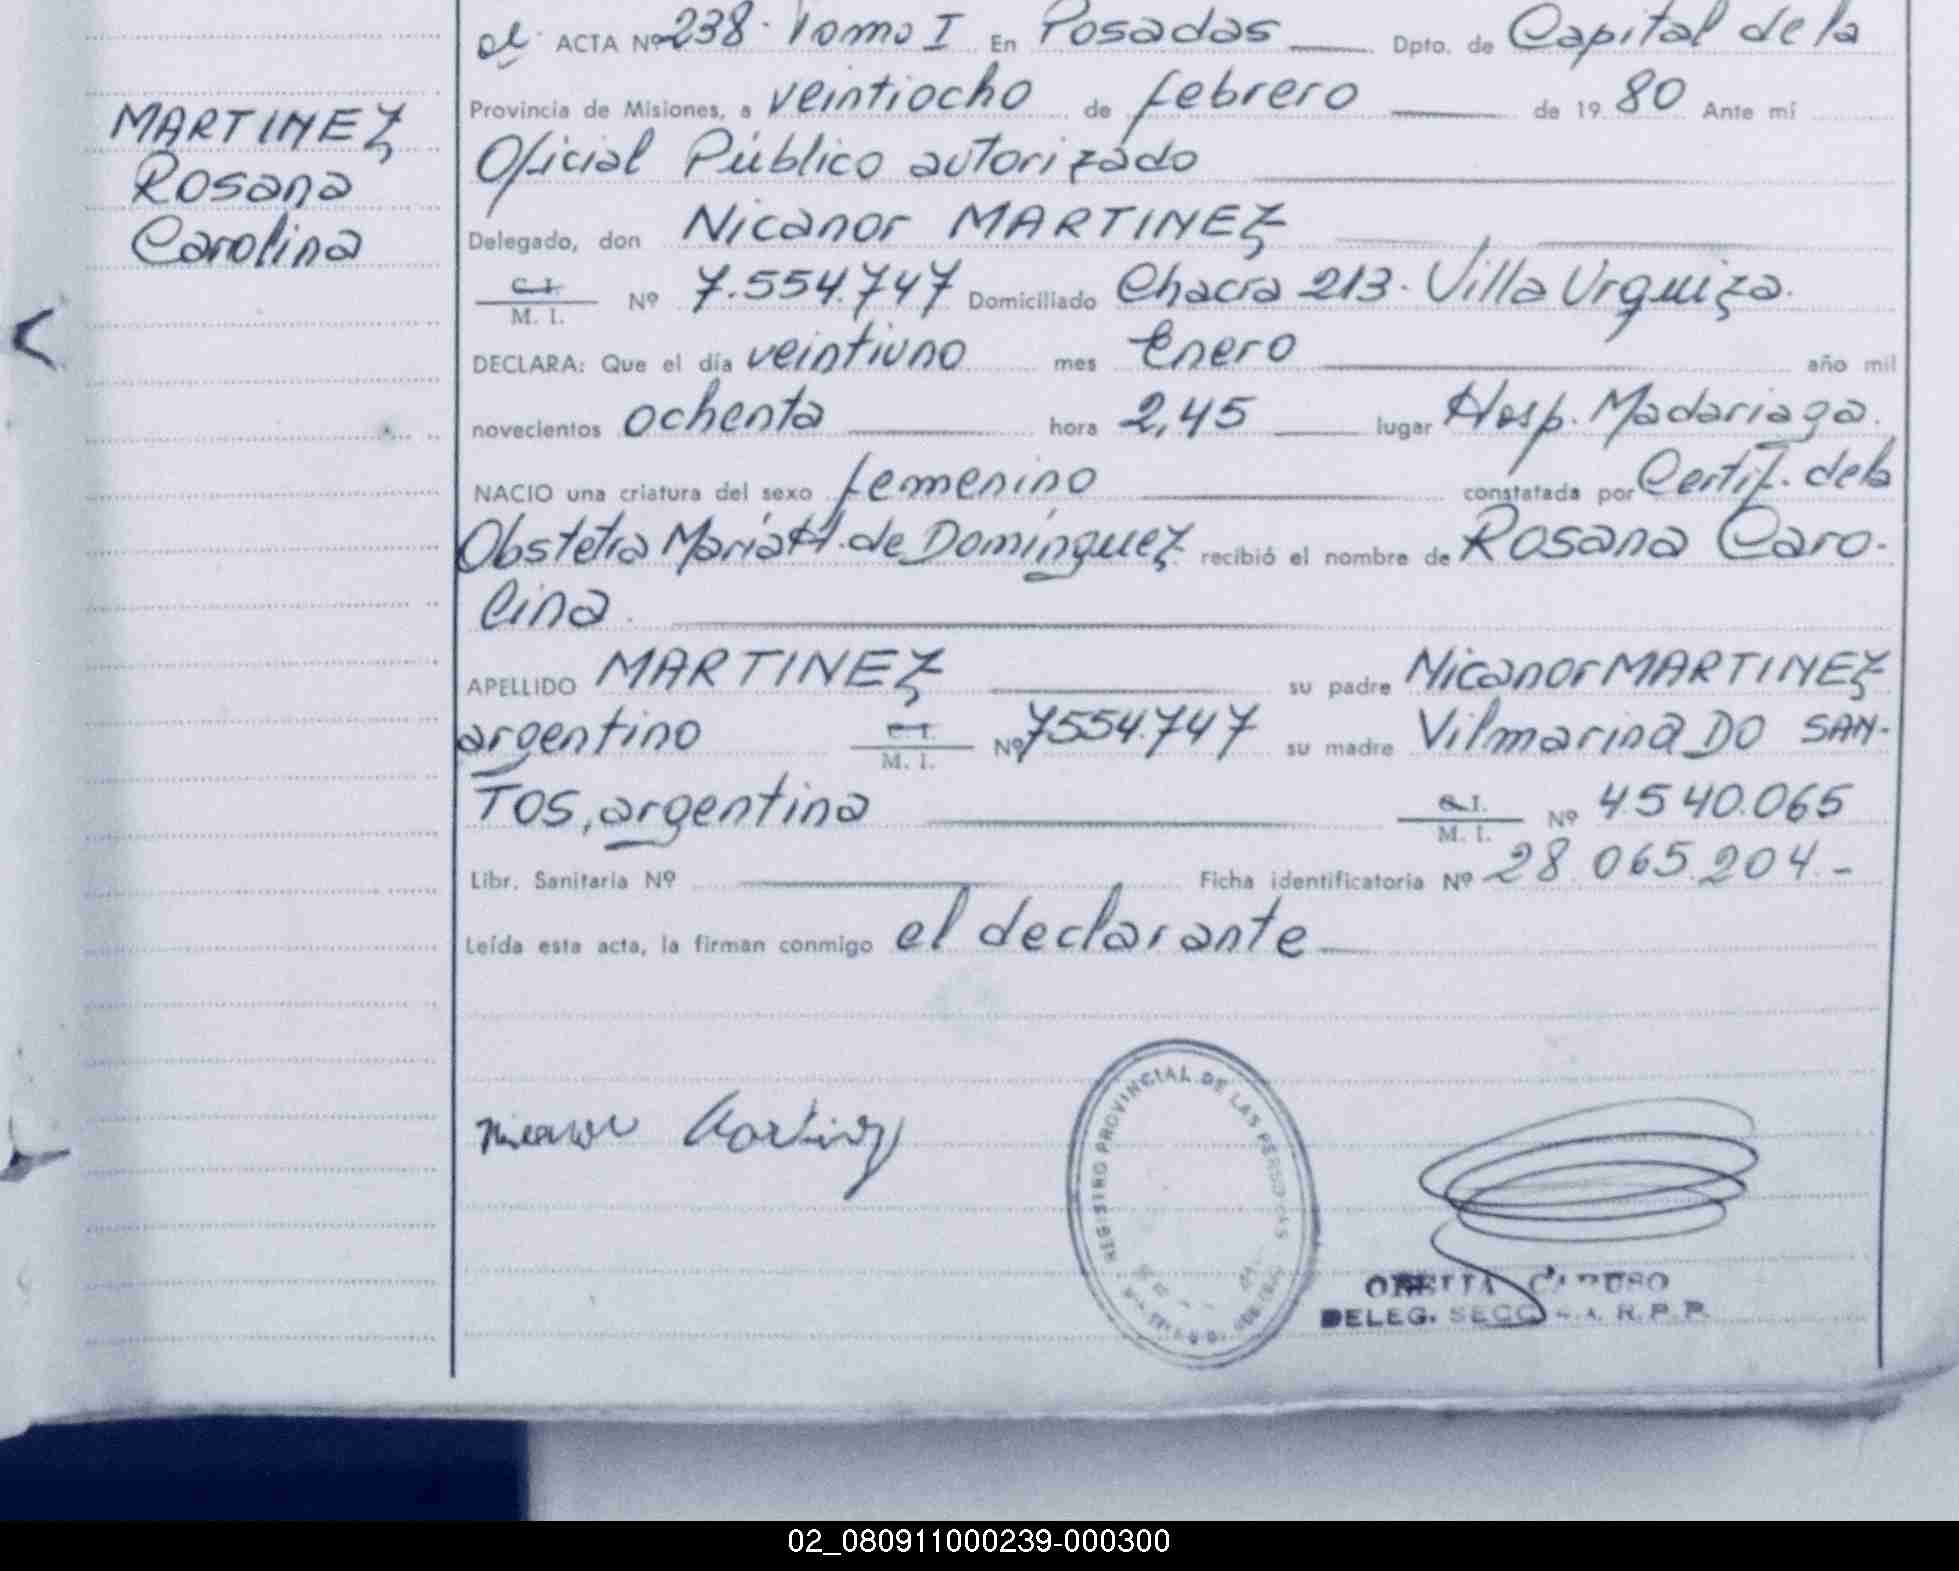 ACTA Nº 238. Tomo I En Posadas Dpto. de Capital de la
Provincia de Misiones, a veintiocho de febrero de 1980 Ante mí
Oficial Público autorizado
Delegado, don Nicanor MARTINEZ
C. I. / M. I. Nº 7.554.747 Domiciliado Chacra 213. Villa Urquiza.
DECLARA: Que el día veintiuno mes Enero año mil
novecientos ochenta hora 2,45 lugar Hosp. Madariaga.
NACIO una criatura del sexo femenino constatada por Certif. de la
Obstetra María H. de Domínguez recibió el nombre de Rosana Caro-
lina.
APELLIDO MARTINEZ su padre Nicanor MARTINEZ
argentino C. I. / M. I. Nº 7554.747 su madre Vilmarina DO SAN-
TOS, argentina C. I. / M. I. Nº 4540.065
Libr. Sanitaria Nº Ficha identificatoria Nº 28.065.204.-
Leída esta acta, la firman conmigo el declarante
MARTINEZ
Rosana
Carolina
Nicanor Martinez
REGISTRO PROVINCIAL DE LAS PERSONAS
CARUSO
DELEG. SECC. R. P. P.
02_080911000239-000300